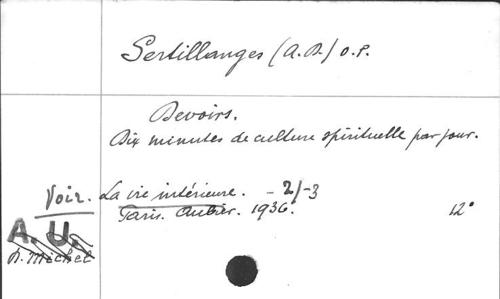 Sertillanges (A. D.) O.P.
Devoirs.
Dix minutes de culture spirituelle par jour.
Voir. La vie intérieure. - 2/-3
Paris. Aubier. 1936. 12°
A. U.
R. Michel